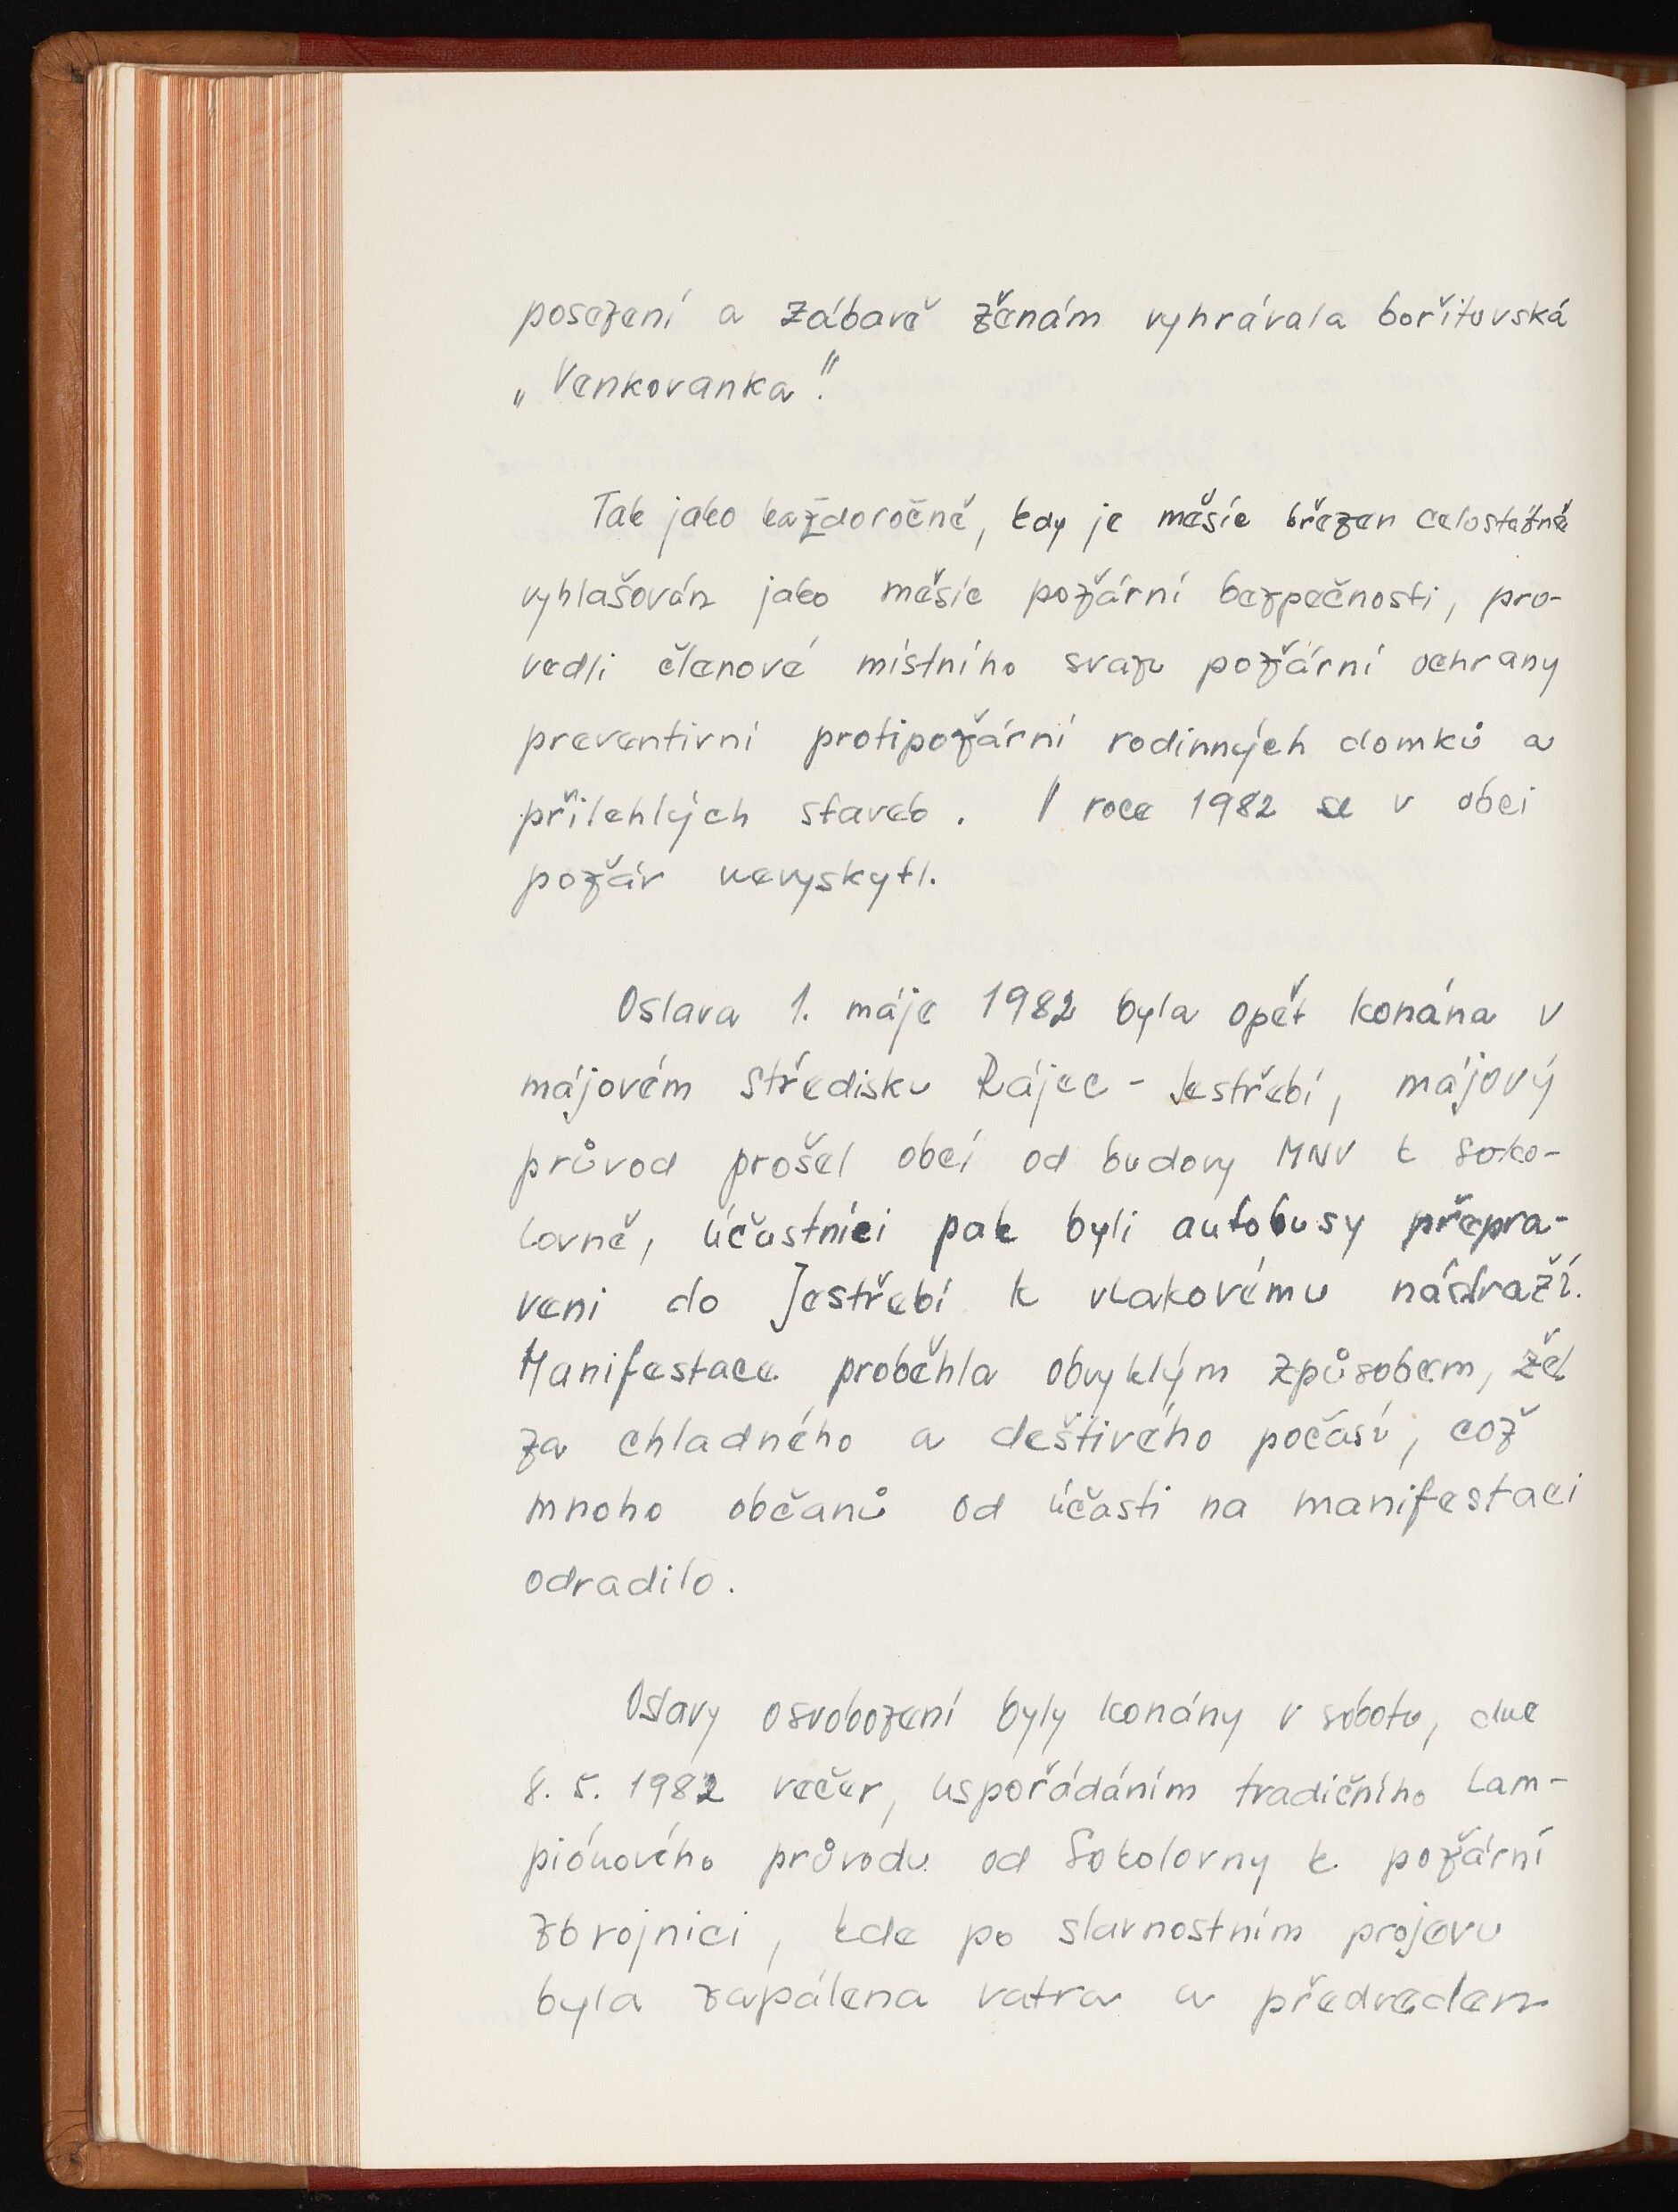 posezení a zábavě ženám vyhrávala bořitovská
„Venkovanka".
Tak jako každoročně, kdy je měsíc březen celostátně
vyhlašován jako měsíc požární bezpečnosti, pro-
vedli členové místního svazu požární ochrany
preventivní protipožární rodinných domků a
přilehlých staveb. V roce 1982 se v obci
požár nevyskytl.
Oslava 1. máje 1982 byla opět konána v
májovém středisku Rájec - Jestřebí, májový
průvod prošel obcí od budovy MNV k soko-
lovně, účastníci pak byli autobusy přepra-
veni do Jestřebí k vlakovému nádraží.
Manifestace proběhla obvyklým způsobem, žel
za chladného a deštivého počásí, což
mnoho občanů od účasti na manifestaci
odradilo.
Oslavy osvobození byly konány v sobotu, dne
8. 5. 1982 večer, uspořádáním tradičního lam-
piónového průvodu od Sokolovny k požární
zbrojnici, kde po slavnostním projevu
byla zapálena vatra a předveden